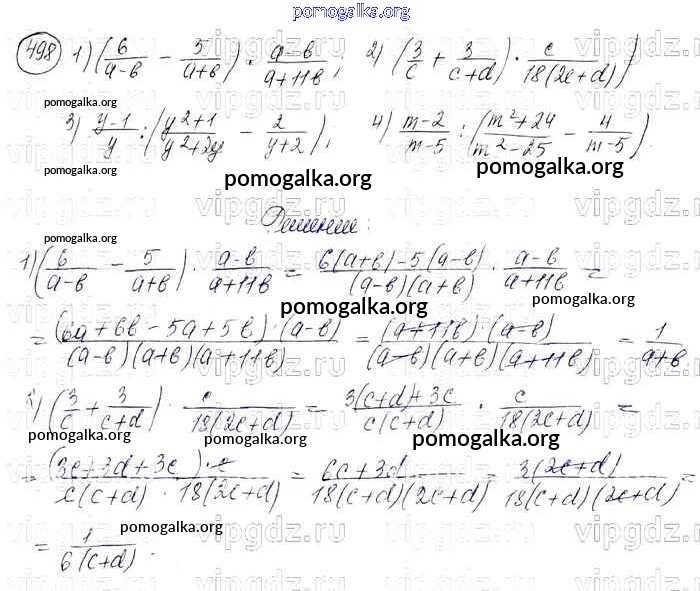 pomogalka.org
498 1) (6/(a-b) - 5/(a+b)) · (a-b)/(a+11b); 2) (3/c + 3/(c+d)) · c/(18(2c+d));
pomogalka.org
3) (y-1)/y : ((y²+1)/(y²+2y) - 2/(y+2)); 4) (m-2)/(m-5) : ((m²+24)/(m²-25) - 4/(m-5)).
pomogalka.org
pomogalka.org
pomogalka.org
Решение:
pomogalka.org
1) (6/(a-b) - 5/(a+b)) · (a-b)/(a+11b) = (6(a+b)-5(a-b))/((a-b)(a+b)) · (a-b)/(a+11b) =
pomogalka.org
pomogalka.org
= ((6a+6b-5a+5b)·(a-b))/((a-b)(a+b)(a+11b)) = ((a+11b)·(a-b))/((a-b)(a+b)(a+11b)) = 1/(a+b)
pomogalka.org
) (3/c + 3/(c+d)) · c/(18(2c+d)) = (3(c+d)+3c)/(c(c+d)) · c/(18(2c+d)) =
pomogalka.org
pomogalka.org
= ((3c+3d+3c)·c)/(c(c+d)·18(2c+d)) = (6c+3d)/(18(c+d)(2c+d)) = (3(2c+d))/(18(c+d)(2c+d)) =
pomogalka.org
= 1/(6(c+d)).
vipgdz.ru